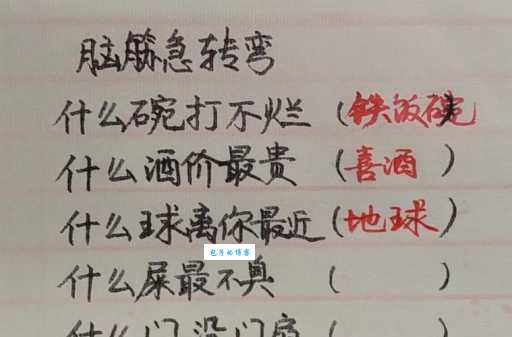 脑筋急转弯
什么碗打不烂（铁饭碗
什么酒价最贵（喜酒）
什么球离你最近（地球）
包不的博客
什么屎最不臭（ ）
什么门没门扇（ ）